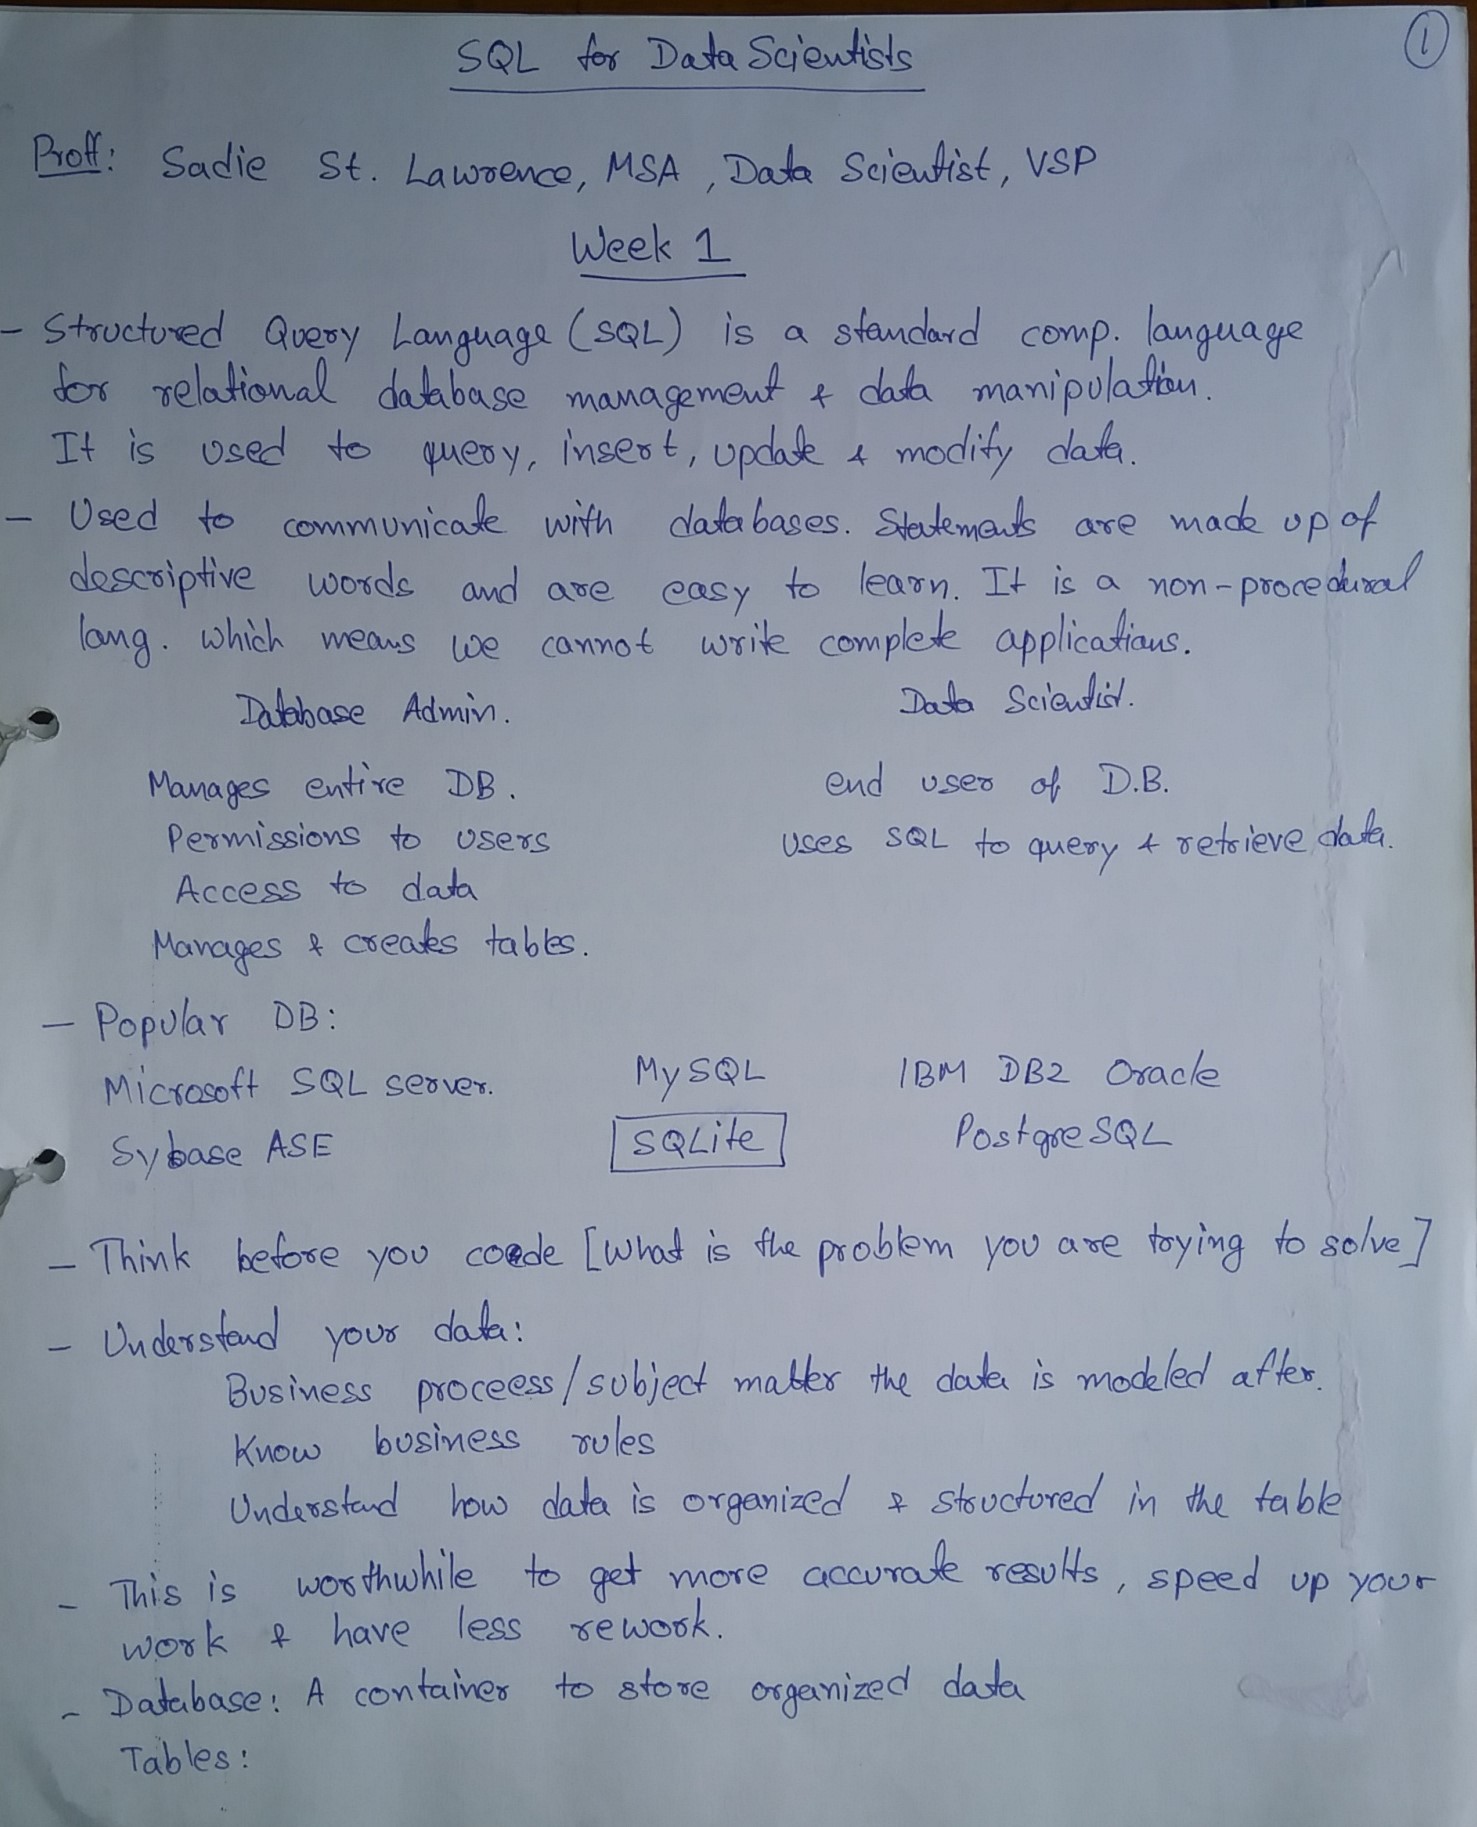 1
SQL for Data Scientists
Proff: Sadie St. Lawrence, MSA, Data Scientist, VSP
Week 1
- Structured Query Language (SQL) is a standard comp. language
for relational database management & data manipulation.
It is used to query, insert, update & modify data.
- Used to communicate with databases. Statements are made up of
descriptive words and are easy to learn. It is a non-procedural
lang. which means we cannot write complete applications.
Database Admin. Data Scientist.
Manages entire DB. end user of D.B.
Permissions to users uses SQL to query & retrieve data.
Access to data
Manages & creates tables.
- Popular DB:
Microsoft SQL server. MySQL IBM DB2 Oracle
Sybase ASE SQLite PostgreSQL
- Think before you code [What is the problem you are trying to solve]
- Understand your data:
Business proceess/subject matter the data is modeled after.
Know business rules
Understand how data is organized & structured in the table
- This is worthwhile to get more accurate results, speed up your
work & have less rework.
- Database: A container to store organized data
Tables: